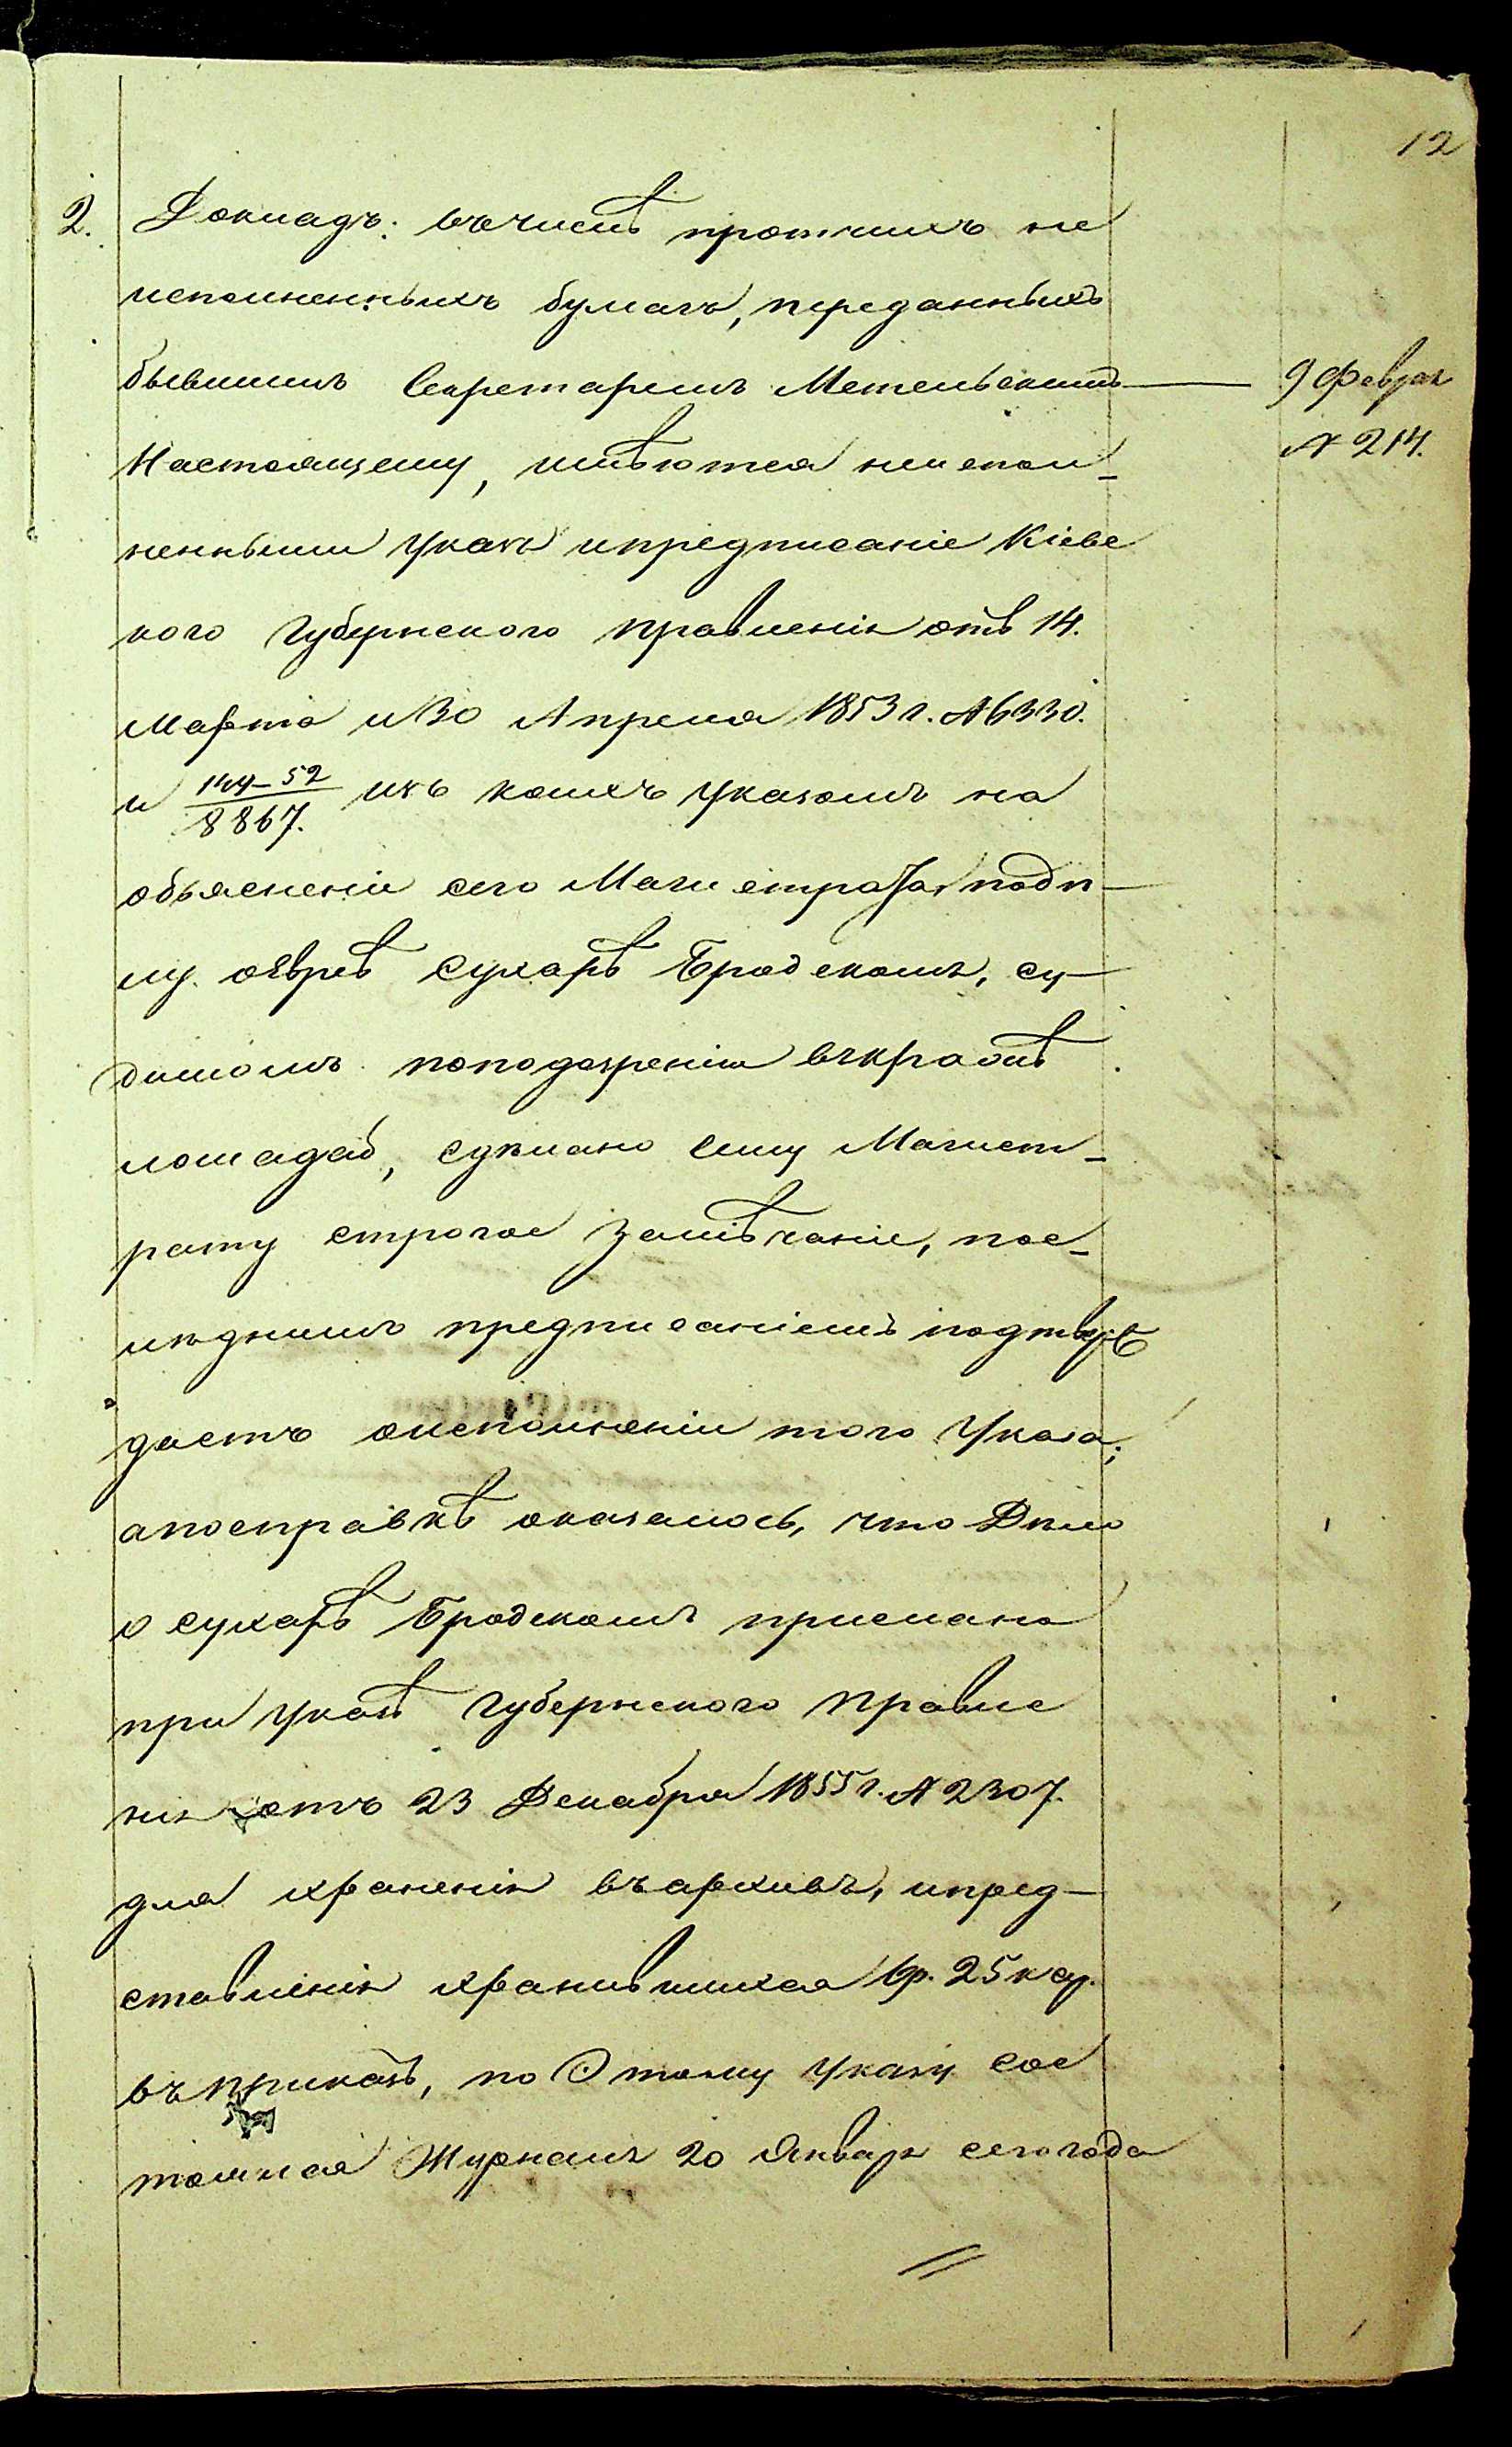 12
2. Докладъ: въ числѣ протчихъ не
исполненныхъ бумагъ, переданныхъ
бывшимъ Секретаремъ Метельскимъ — 9 Феврал
Настоящему, имѣются неиспол- № 214.
ненными указъ и предписаніе Кіевс
кого Губернского правленія отъ 14.
Марта и 30 Апреля 1853 г. № 6330.
и 144-52/8867. изъ коихъ указомъ на
объясненіи сего Магистрата по дѣ-
лу о Еврѣѣ Сухарѣ Бродскомъ, су-
димомъ по подозренію въ кражѣ
лошадей, сдѣлано сему Магист-
рату строгое замѣчаніе, пос-
лѣднимъ предписаніемъ подтверж
даетъ о исполненіи того Указа;
а по справкѣ оказалось, что Дѣло
о Сухарѣ Бродскомъ прислано
при указѣ Губернского правле
нія отъ 23 Декабря 1855 г. № 2307.
для храненія въ архивѣ, и пред-
ставленія хранившихся 6 р. 25 к ср.
въ приказъ, по Этому указу сос
тоялся Журналъ 20 Января сего года